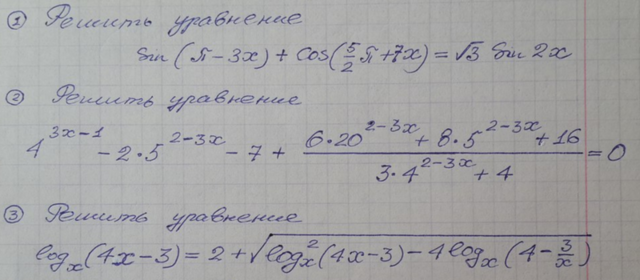 ① Решить уравнение
sin(π - 3x) + cos(5/2 π + 7x) = √3 sin 2x
② Решить уравнение
4^(3x-1) - 2·5^(2-3x) - 7 + (6·20^(2-3x) + 8·5^(2-3x) + 16)/(3·4^(2-3x) + 4) = 0
③ Решить уравнение
log_x(4x-3) = 2 + √(log_x^2(4x-3) - 4log_x(4 - 3/x))